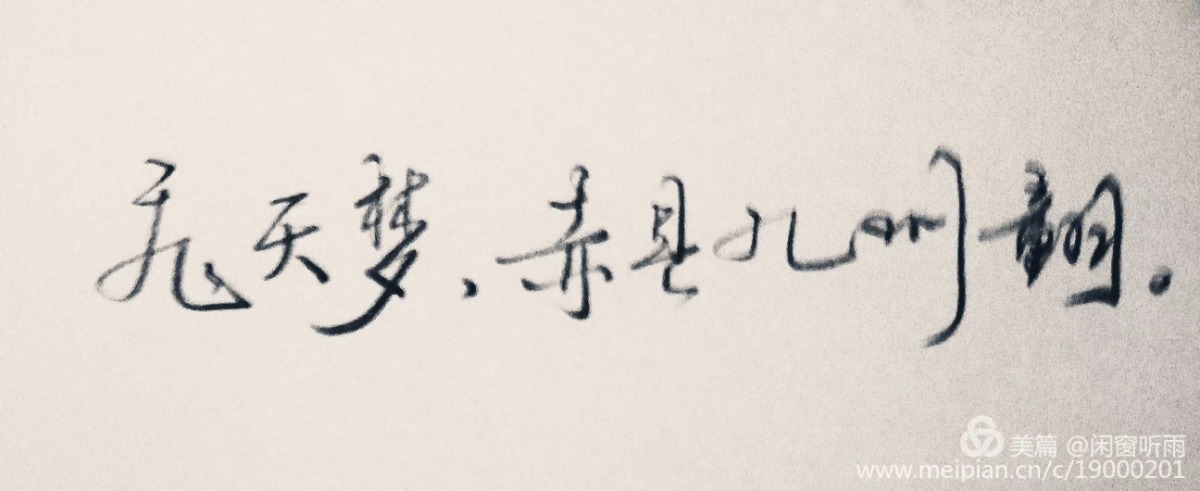 飞天梦，赤县九州翻。
美篇 @闲窗听雨
www.meipian.cn/c/19000201